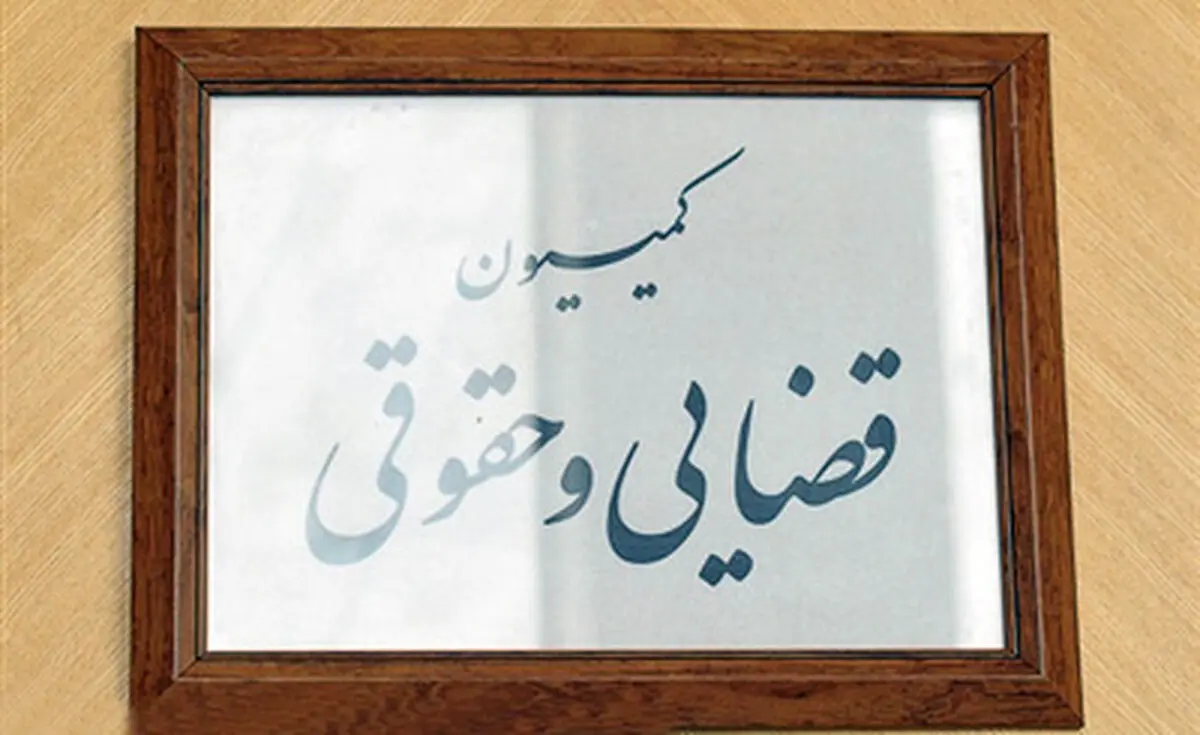 کمیسیون
قضایی و حقوقی